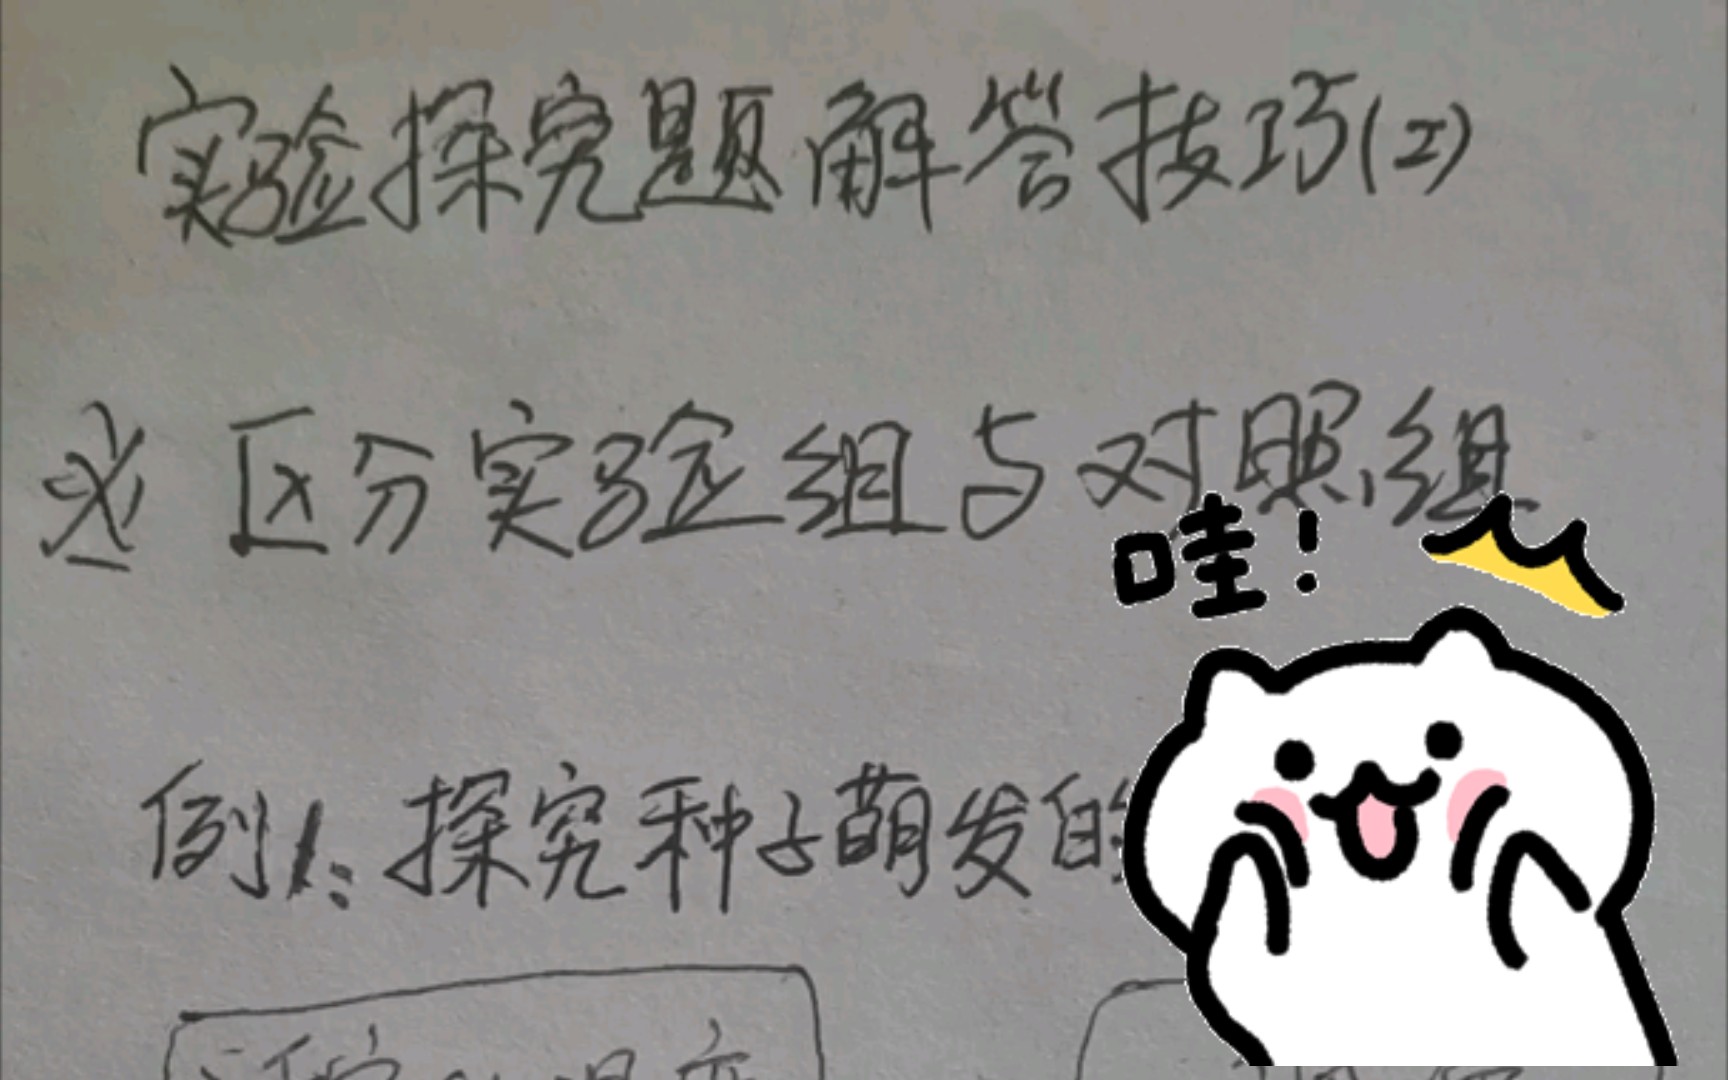 实验探究题解答技巧(2)
※ 区分实验组与对照组
哇!
例1:探究种子萌发的
适宜的温度